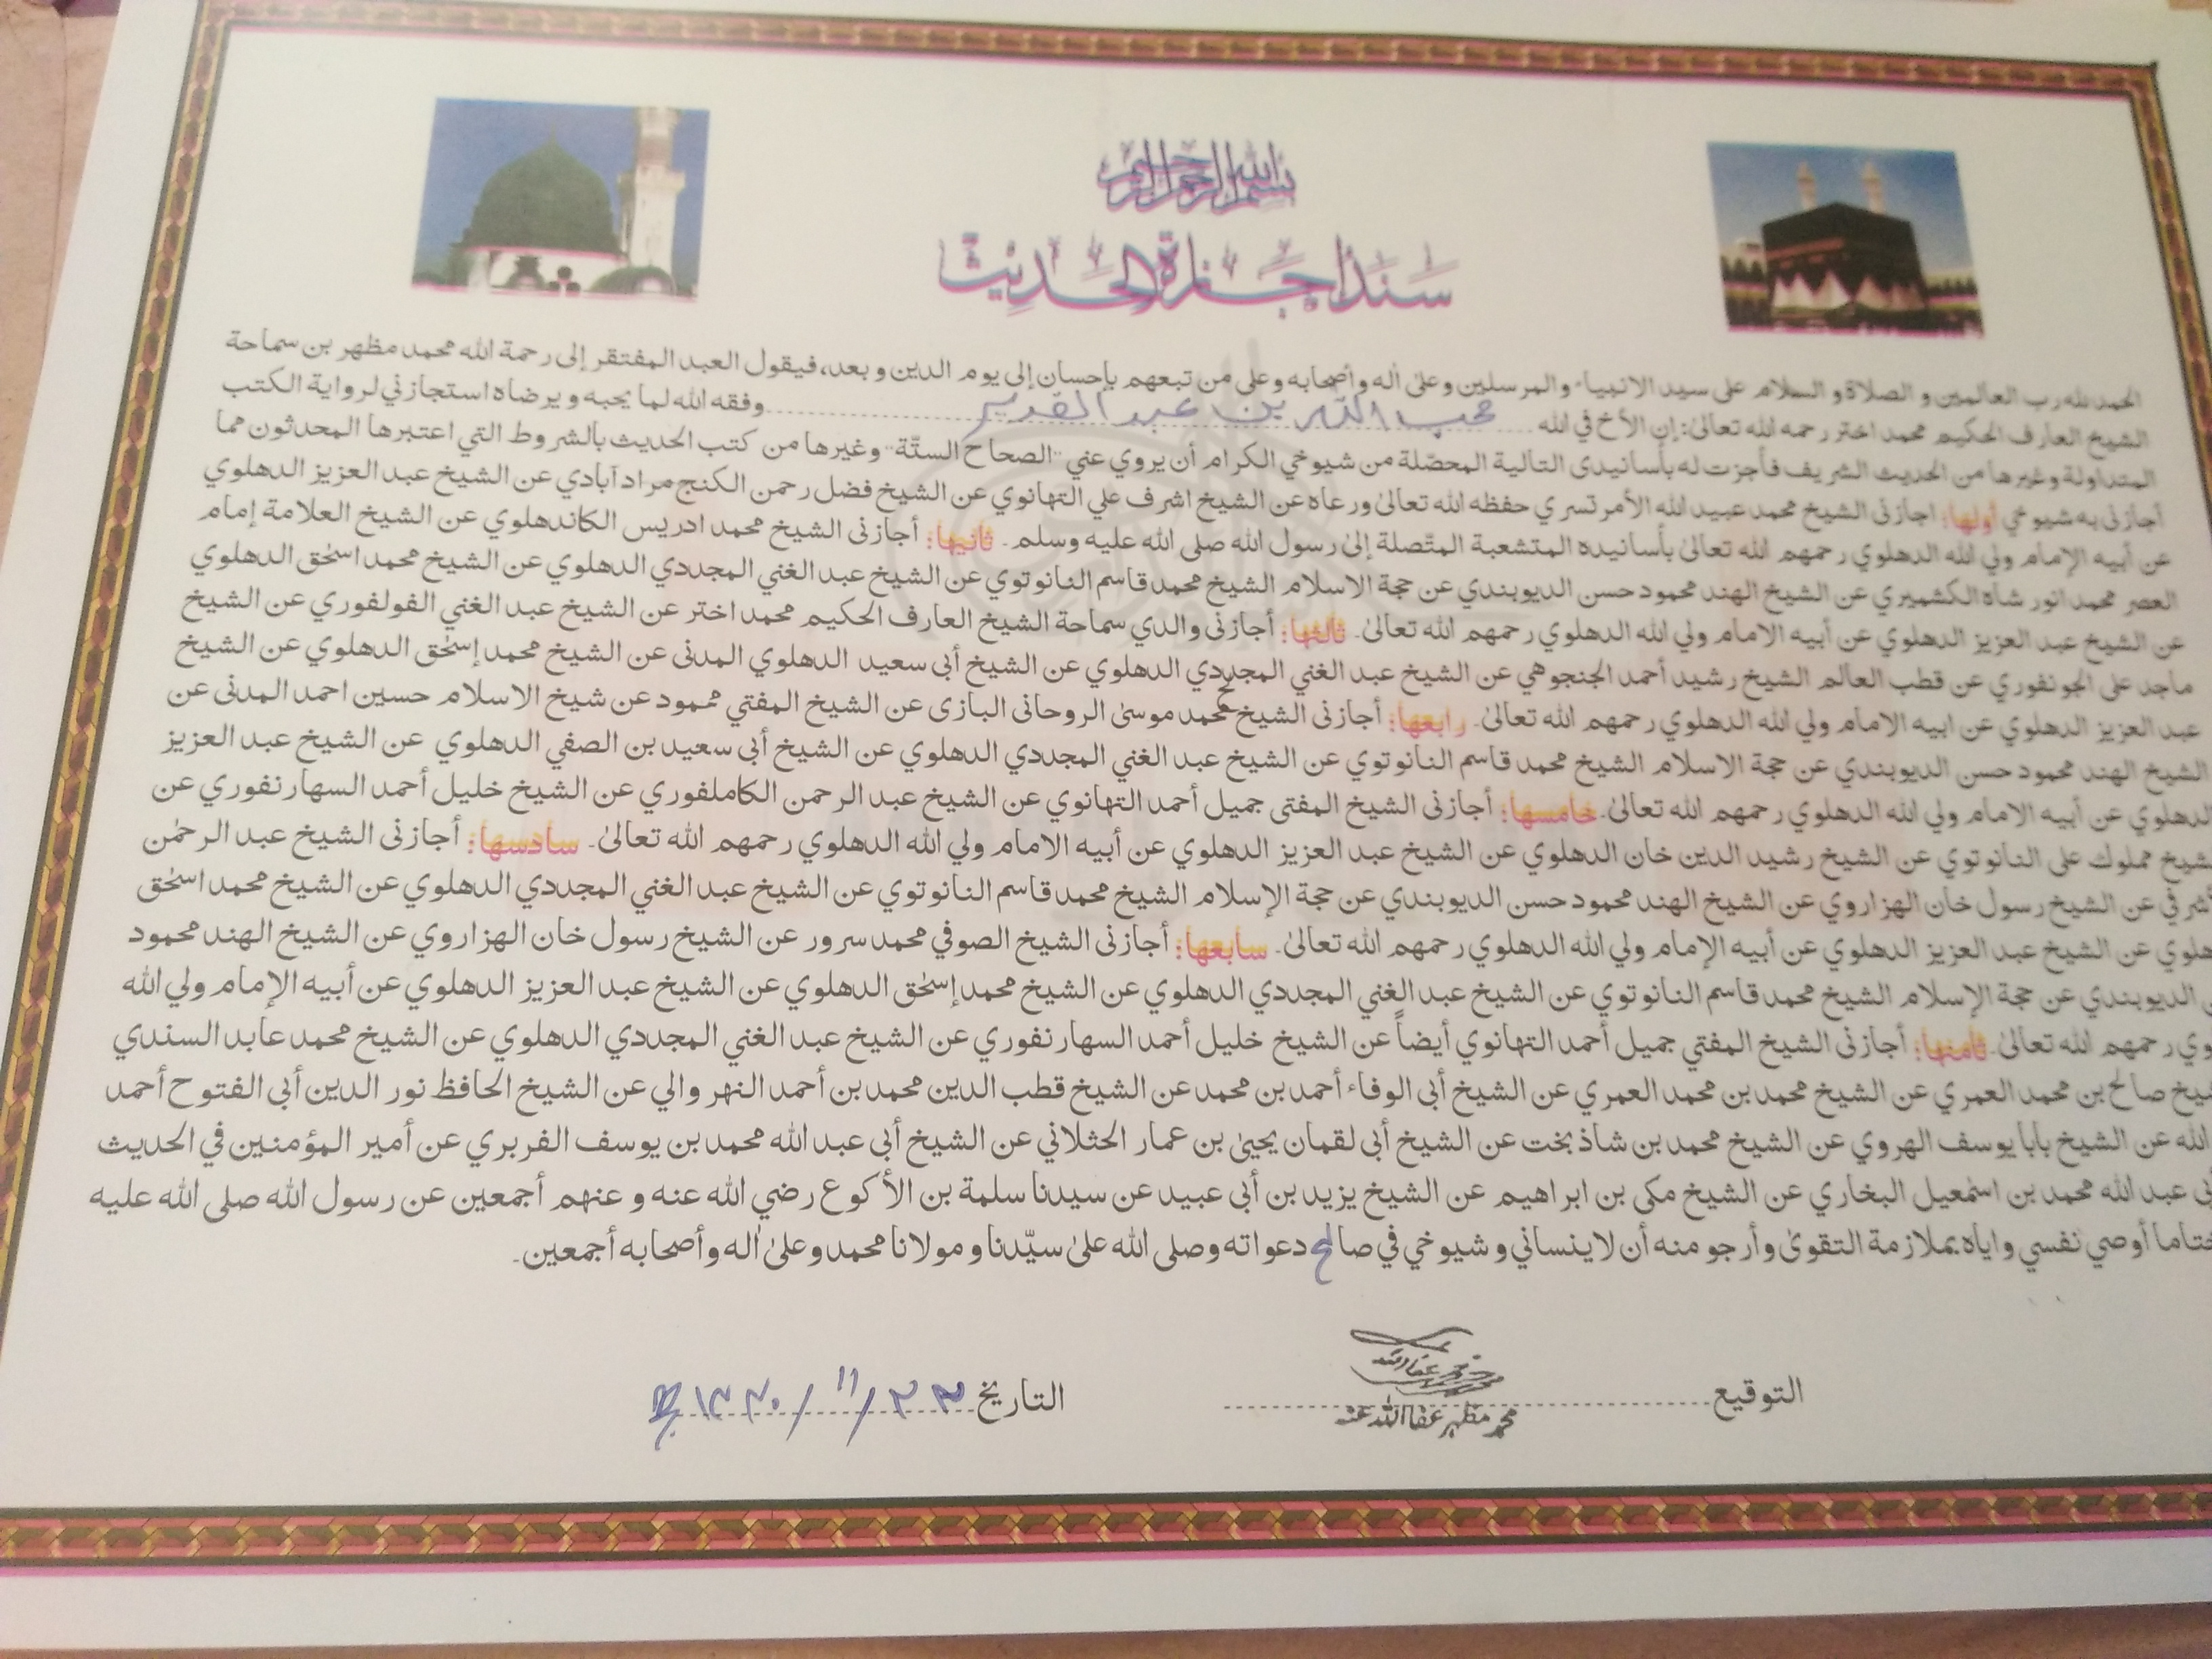 بسم الله الرحمن الرحيم
سند اجازة الحديث
الحمد لله رب العالمين و الصلاة و السلام على سيد الانبياء والمرسلين وعلى آله وأصحابه وعلى من تبعهم بإحسان إلى يوم الدين و بعد، فيقول العبد المفتقر إلى رحمة الله محمد مظهر بن سماحة
الشيخ العارف الحكيم محمد اختر رحمه الله تعالى: إن الأخ في الله محب الله بن عبد القدير وفقه الله لما يحبه و يرضاه استجازني لرواية الكتب
المتداولة وغيرها من الحديث الشريف فأجزت له بأسانيدى التالية المحصّلة من شيوخي الكرام أن يروي عني "الصحاح الستّة" وغيرها من كتب الحديث بالشروط التي اعتبرها المحدثون مما
أجازنى به شيوخي أولها: اجازنى الشيخ محمد عبيد الله الأمرتسري حفظه الله تعالى ورعاه عن الشيخ اشرف علي التهانوي عن الشيخ فضل رحمن الكنج مراد آبادي عن الشيخ عبد العزيز الدهلوي
عن أبيه الإمام ولي الله الدهلوي رحمهم الله تعالى بأسانيده المتشعبة المتّصلة إلى رسول الله صلى الله عليه وسلم۔ ثانيها: أجازنى الشيخ محمد ادريس الكاندهلوي عن الشيخ العلامة إمام
العصر محمد انور شاه الكشميري عن الشيخ الهند محمود حسن الديوبندي عن حجة الاسلام الشيخ محمد قاسم النانوتوي عن الشيخ عبد الغني المجددي الدهلوي عن الشيخ محمد اسحٰق الدهلوي
عن الشيخ عبد العزيز الدهلوي عن أبيه الامام ولي الله الدهلوي رحمهم الله تعالىٰ۔ ثالثها: أجازنى والدي سماحة الشيخ العارف الحكيم محمد اختر عن الشيخ عبد الغني الفولفوري عن الشيخ
ماجد على الجونفوري عن قطب العالم الشيخ رشيد أحمد الجنجوهي عن الشيخ عبد الغني المجددي الدهلوي عن الشيخ أبى سعيد الدهلوي المدنى عن الشيخ محمد إسحٰق الدهلوي عن الشيخ
عبد العزيز الدهلوي عن ابيه الامام ولي الله الدهلوي رحمهم الله تعالىٰ۔ رابعها: أجازنى الشيخ محمد موسىٰ الروحانى البازى عن الشيخ المفتي محمود عن شيخ الاسلام حسين احمد المدنى عن
الشيخ الهند محمود حسن الديوبندي عن حجة الاسلام الشيخ محمد قاسم النانوتوي عن الشيخ عبد الغني المجددي الدهلوي عن الشيخ أبى سعيد بن الصفي الدهلوي عن الشيخ عبد العزيز
الدهلوي عن أبيه الامام ولي الله الدهلوي رحمهم الله تعالىٰ۔ خامسها: أجازنى الشيخ المفتى جميل أحمد التهانوي عن الشيخ عبد الرحمن الكاملفوري عن الشيخ خليل أحمد السهارنفوري عن
شيخ مملوك على النانوتوي عن الشيخ رشيد الدين خان الدهلوي عن الشيخ عبد العزيز الدهلوي عن أبيه الامام ولي الله الدهلوي رحمهم الله تعالىٰ۔ سادسها: أجازنى الشيخ عبد الرحمٰن
شرفي عن الشيخ رسول خان الهزاروي عن الشيخ الهند محمود حسن الديوبندي عن حجة الإسلام الشيخ محمد قاسم النانوتوي عن الشيخ عبد الغني المجددي الدهلوي عن الشيخ محمد اسحٰق
هلوي عن الشيخ عبد العزيز الدهلوي عن أبيه الإمام ولي الله الدهلوي رحمهم الله تعالىٰ۔ سابعها: أجازنى الشيخ الصوفي محمد سرور عن الشيخ رسول خان الهزاروي عن الشيخ الهند محمود
الديوبندي عن حجة الإسلام الشيخ محمد قاسم النانوتوي عن الشيخ عبد الغني المجددي الدهلوي عن الشيخ محمد إسحٰق الدهلوي عن الشيخ عبد العزيز الدهلوي عن أبيه الإمام ولي الله
وي رحمهم الله تعالىٰ۔ ثامنها: أجازنى الشيخ المفتي جميل أحمد التهانوي أيضاً عن الشيخ خليل أحمد السهارنفوري عن الشيخ عبد الغني المجددي الدهلوي عن الشيخ محمد عابد السندي
يخ صالح بن محمد العمري عن الشيخ محمد بن محمد العمري عن الشيخ أبى الوفاء أحمد بن محمد عن الشيخ قطب الدين محمد بن أحمد النهروالي عن الشيخ الحافظ نور الدين أبى الفتوح أحمد
الله عن الشيخ بابا يوسف الهروي عن الشيخ محمد بن شاذ بخت عن الشيخ أبى لقمان يحيىٰ بن عمار الحثلاني عن الشيخ أبى عبد الله محمد بن يوسف الفربري عن أمير المؤمنين في الحديث
بى عبد الله محمد بن اسمٰعيل البخاري عن الشيخ مكى بن ابراهيم عن الشيخ يزيد بن أبى عبيد عن سيدنا سلمة بن الأكوع رضي الله عنه و عنهم أجمعين عن رسول الله صلى الله عليه
ختاما أوصي نفسي واياه بملازمة التقوىٰ وأرجو منه أن لا ينساني و شيوخي في صالح دعواته وصلى الله علىٰ سيّدنا و مولانا محمد وعلىٰ اٰله وأصحابه أجمعين۔
التوقيع
محمد مظہر عفا اللہ عنہ
التاريخ ۲۳/۱۱/۱۴۴۰ھ